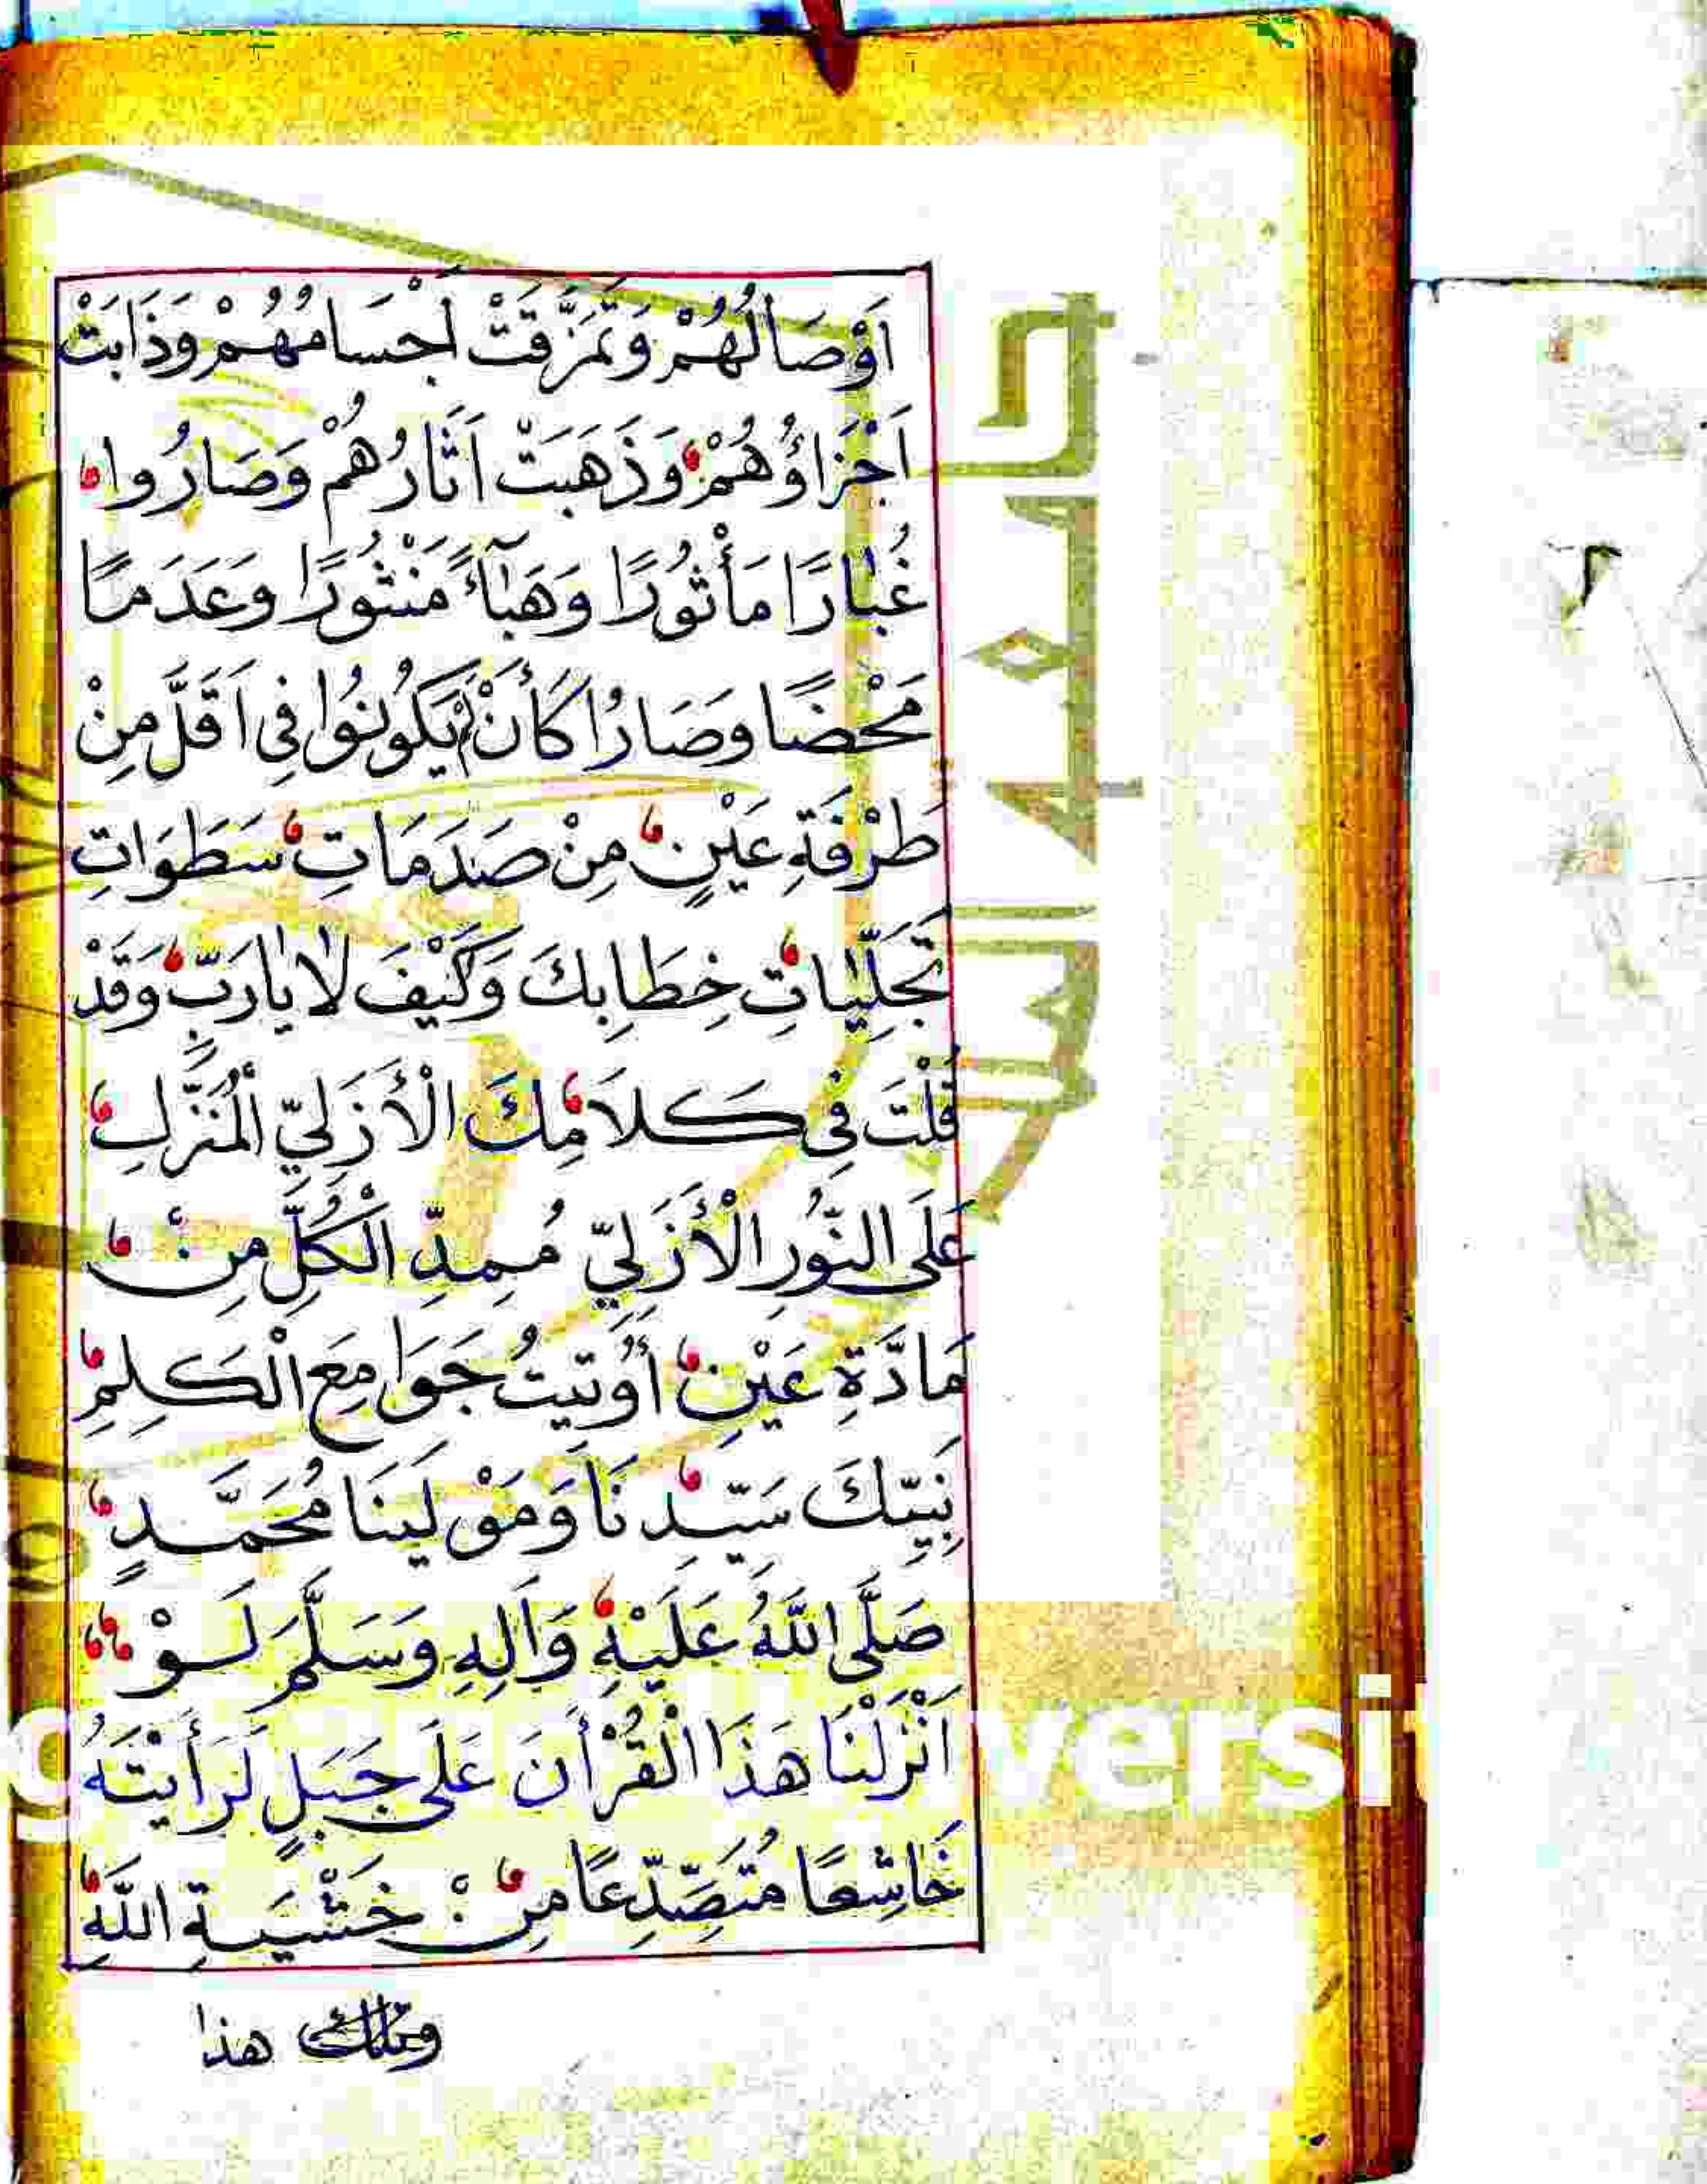 اَوْصَالُهُمْ وَتَمَزَّقَتْ اَجْسَامُهُمْ وَذَابَتْ
اَجْزَاؤُهُمْ وَذَهَبَتْ اَثَارُهُمْ وَصَارُوا
غُبَارًا مَأْثُورًا وَهَبَآءً مَنْثُورًا وَعَدَمًا
مَحْضًا وَصَارُا كَأَنْ لَمْ يَكُونُوا فِى اَقَلَّ مِنْ
طَرْفَةِ عَيْنٍ مِنْ صَدَمَاتِ سَطَوَاتِ
تَجَلِّيَاتِ خِطَابِكَ وَكَيْفَ لَا يَارَبِّ وَقَدْ
قُلْتَ فِى كَلاَمِكَ الْأَزَلِيِّ الْمُنَزَّلِ
عَلَى النُّورِ الْأَزَلِيِّ مُمِدِّ الْكُلِّ مِنْ
مَادَّةِ عَيْنِ أُوتِيتُ جَوَامِعَ الْكَلِمِ
نَبِيِّكَ سَيِّدِنَا وَمَوْلَينَا مُحَمَّدٍ
صَلَّى اللَّهُ عَلَيْهِ وَآلِهِ وَسَلَّمَ لَوْ
اَنْزَلْنَا هَذَا الْقُرْأَنَ عَلَى جَبَلٍ لَرَأَيْتَهُ
خَاشِعًا مُتَصَدِّعًا مِنْ خَشْيَةِ اللَّهِ
وتلك هذا
versit